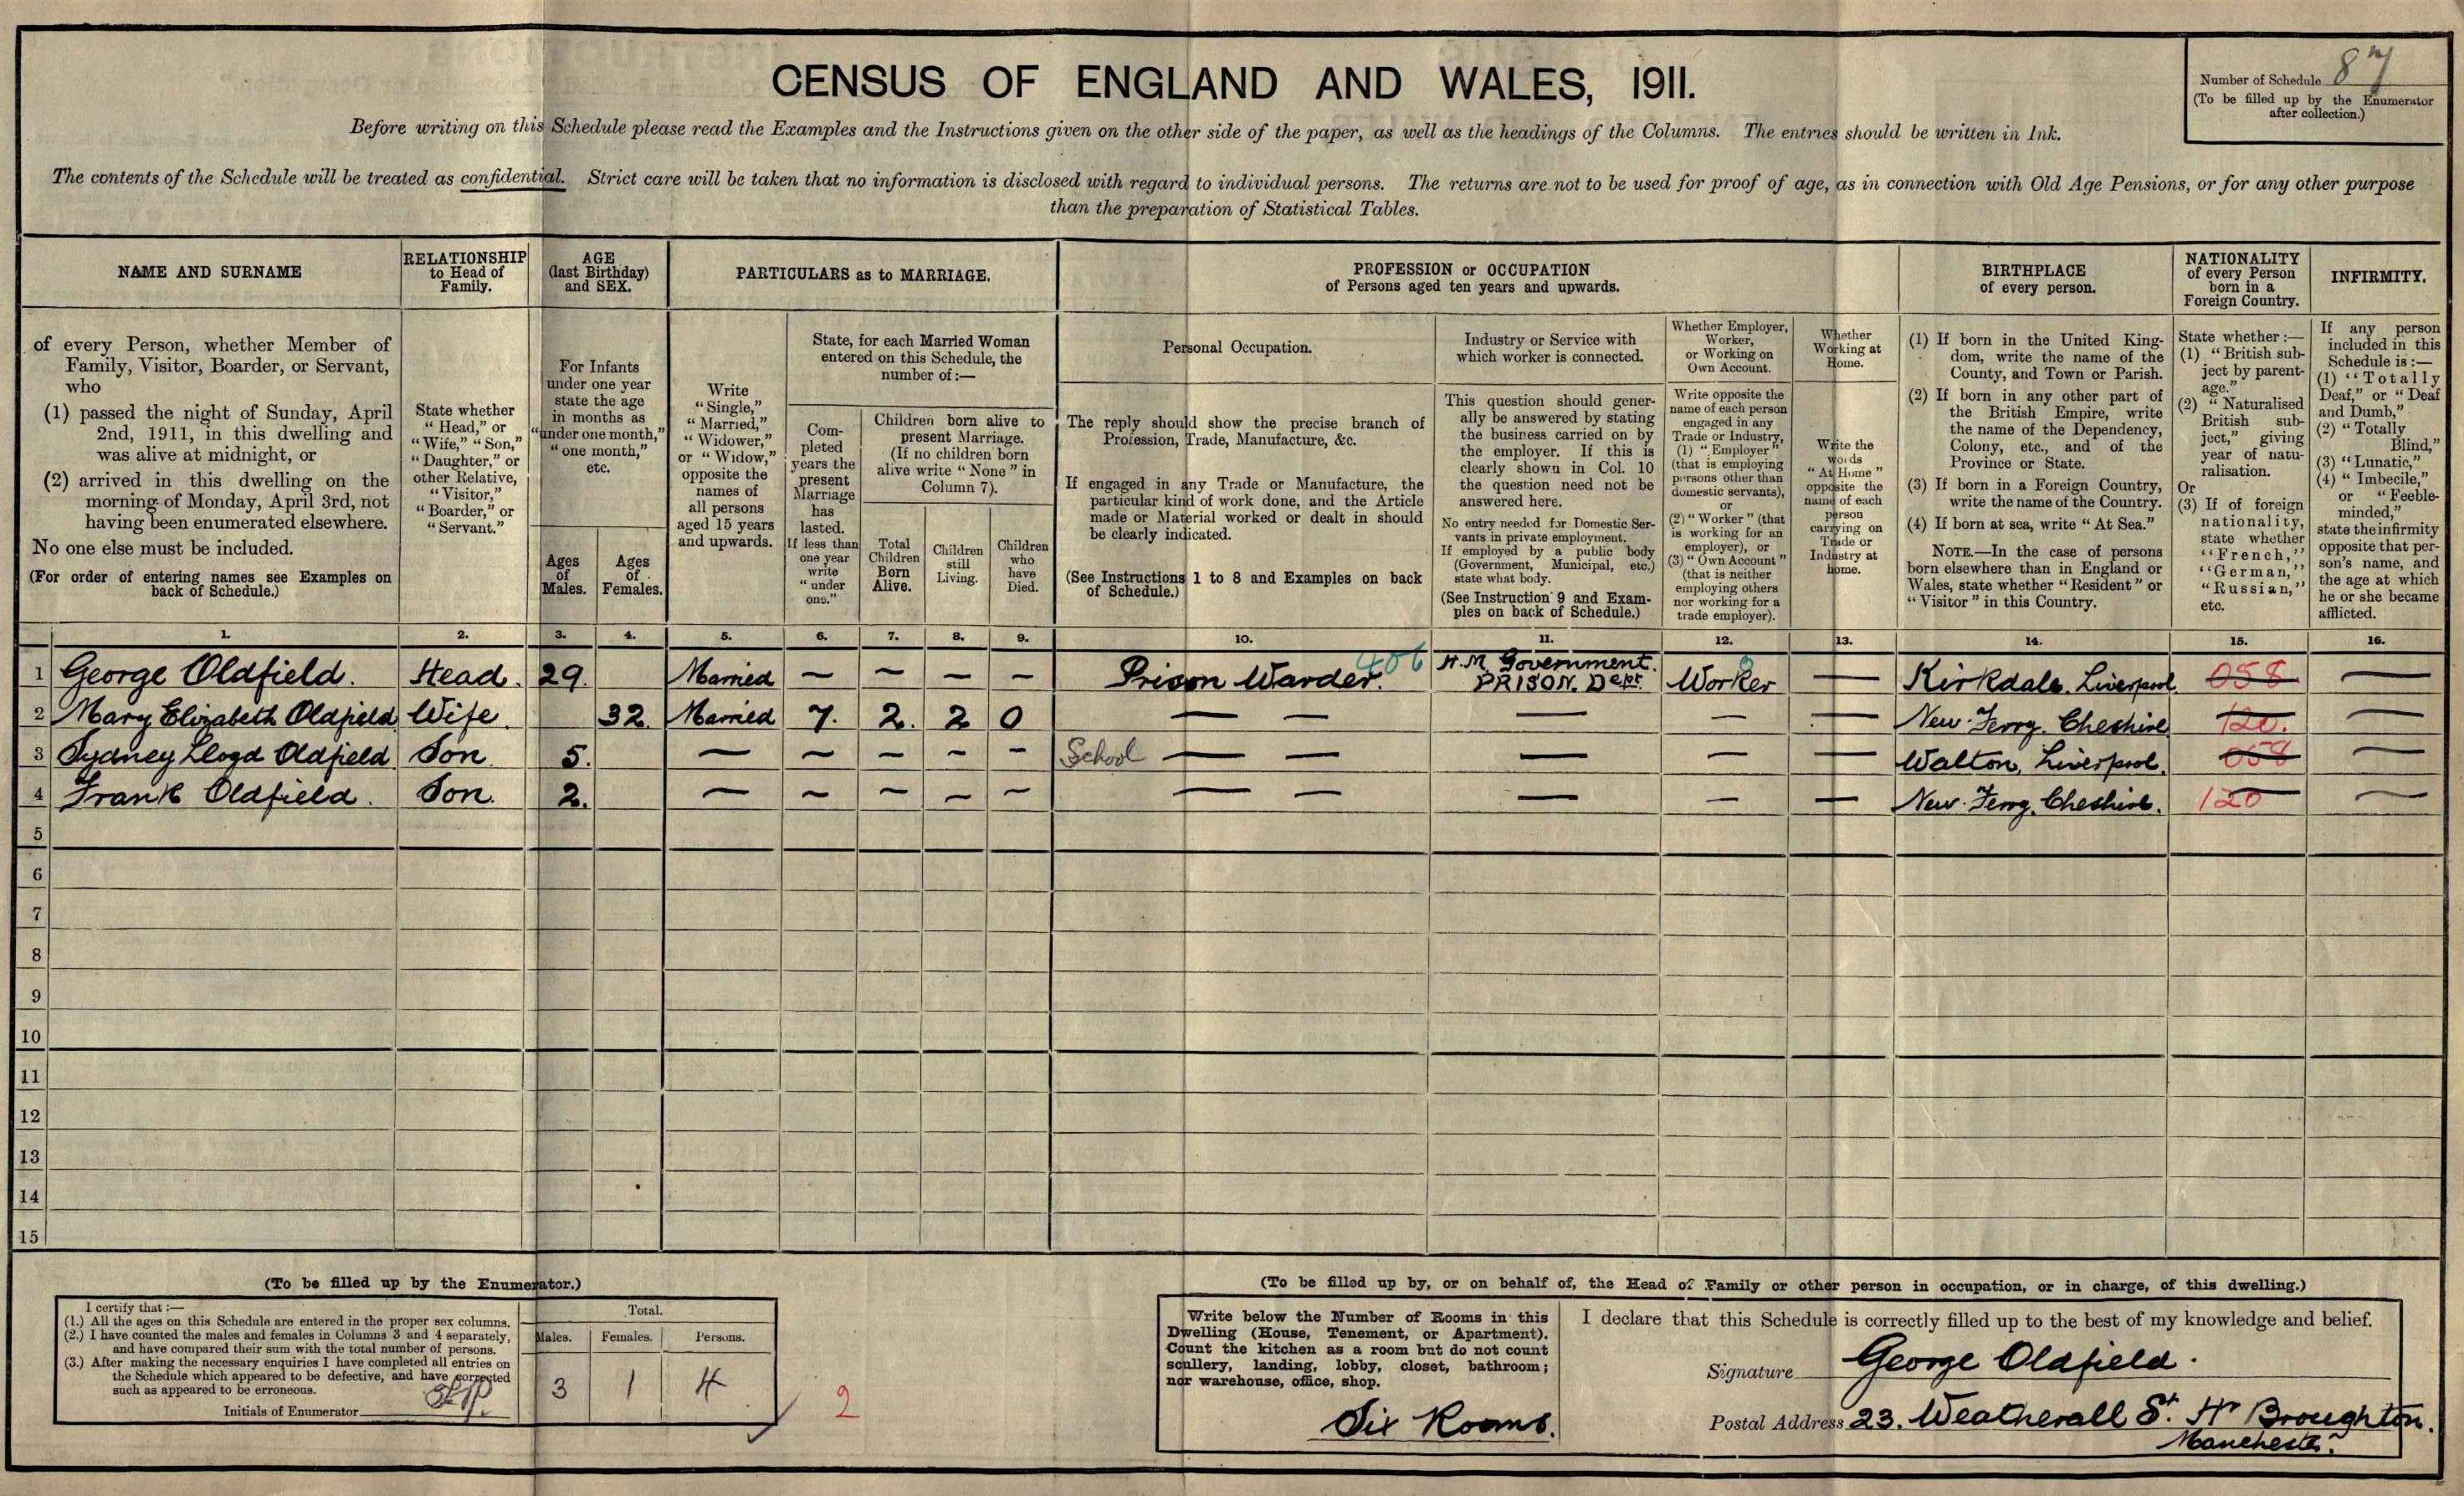 CENSUS OF ENGLAND AND WALES, 1911.
Number of Schedule 87
(To be filled up by the Enumerator
after collection.)
Before writing on this Schedule please read the Examples and the Instructions given on the other side of the paper, as well as the headings of the Columns. The entries should be written in Ink.
The contents of the Schedule will be treated as confidential. Strict care will be taken that no information is disclosed with regard to individual persons. The returns are not to be used for proof of age, as in connection with Old Age Pensions, or for any other purpose
than the preparation of Statistical Tables.
NAME AND SURNAME
of every Person, whether Member of
Family, Visitor, Boarder, or Servant,
who
(1) passed the night of Sunday, April
2nd, 1911, in this dwelling and
was alive at midnight, or
(2) arrived in this dwelling on the
morning of Monday, April 3rd, not
having been enumerated elsewhere.
No one else must be included.
(For order of entering names see Examples on
back of Schedule.)
RELATIONSHIP
to Head of
Family.
State whether
"Head," or
"Wife," "Son,"
"Daughter," or
other Relative,
"Visitor,"
"Boarder," or
"Servant."
AGE
(last Birthday)
and SEX.
For Infants
under one year
state the age
in months as
"under one month,"
"one month,"
etc.
Ages
of
Males.
Ages
of
Females.
PARTICULARS as to MARRIAGE.
Write
"Single,"
"Married,"
"Widower,"
or "Widow,"
opposite the
names of
all persons
aged 15 years
and upwards.
State, for each Married Woman
entered on this Schedule, the
number of:—
Com-
pleted
years the
present
Marriage
has
lasted.
If less than
one year
write
"under
one."
Children born alive to
present Marriage.
(If no children born
alive write "None" in
Column 7).
Total
Children
Born
Alive.
Children
still
Living.
Children
who
have
Died.
PROFESSION or OCCUPATION
of Persons aged ten years and upwards.
Personal Occupation.
The reply should show the precise branch of
Profession, Trade, Manufacture, &c.
If engaged in any Trade or Manufacture, the
particular kind of work done, and the Article
made or Material worked or dealt in should
be clearly indicated.
(See Instructions 1 to 8 and Examples on back
of Schedule.)
Industry or Service with
which worker is connected.
This question should gener-
ally be answered by stating
the business carried on by
the employer. If this is
clearly shown in Col. 10
the question need not be
answered here.
No entry needed for Domestic Ser-
vants in private employment.
If employed by a public body
(Government, Municipal, etc.)
state what body.
(See Instruction 9 and Exam-
ples on back of Schedule.)
Whether Employer,
Worker,
or Working on
Own Account.
Write opposite the
name of each person
engaged in any
Trade or Industry,
(1) "Employer"
(that is employing
persons other than
domestic servants),
or
(2) "Worker" (that
is working for an
employer), or
(3) "Own Account"
(that is neither
employing others
nor working for a
trade employer).
Whether
Working at
Home.
Write the
words
"At Home"
opposite the
name of each
person
carrying on
Trade or
Industry at
home.
BIRTHPLACE
of every person.
(1) If born in the United King-
dom, write the name of the
County, and Town or Parish.
(2) If born in any other part of
the British Empire, write
the name of the Dependency,
Colony, etc., and of the
Province or State.
(3) If born in a Foreign Country,
write the name of the Country.
(4) If born at sea, write "At Sea."
NOTE.—In the case of persons
born elsewhere than in England or
Wales, state whether "Resident" or
"Visitor" in this Country.
NATIONALITY
of every Person
born in a
Foreign Country.
State whether:—
(1) "British sub-
ject by parent-
age."
(2) "Naturalised
British sub-
ject," giving
year of natu-
ralisation.
Or
(3) If of foreign
nationality,
state whether
"French,"
"German,"
"Russian,"
etc.
INFIRMITY.
If any person
included in this
Schedule is:—
(1) "Totally
Deaf," or "Deaf
and Dumb,"
(2) "Totally
Blind,"
(3) "Lunatic,"
(4) "Imbecile,"
or "Feeble-
minded,"
state the infirmity
opposite that per-
son's name, and
the age at which
he or she became
afflicted.
1. 2. 3. 4. 5. 6. 7. 8. 9. 10. 11. 12. 13. 14. 15. 16.
1 George Oldfield. Head. 29. Married — — — — Prison Warder. 406 H.M. Government. PRISON. Dept. Worker — Kirkdale. Liverpool. 058 —
2 Mary Elizabeth Oldfield Wife. 32. Married 7. 2. 2 0 — — — — — New Ferry. Cheshire 120. —
3 Sydney Lloyd Oldfield. Son. 5. — — — — — School — — — — — Walton, Liverpool. 058 —
4 Frank Oldfield. Son. 2. — — — — — — — — — — New Ferry. Cheshire. 120 —
5
6
7
8
9
10
11
12
13
14
15
(To be filled up by the Enumerator.)
I certify that:—
(1.) All the ages on this Schedule are entered in the proper sex columns.
(2.) I have counted the males and females in Columns 3 and 4 separately,
and have compared their sum with the total number of persons.
(3.) After making the necessary enquiries I have completed all entries on
the Schedule which appeared to be defective, and have corrected
such as appeared to be erroneous.
Initials of Enumerator
Total.
Males. Females. Persons.
3 1 4
2
(To be filled up by, or on behalf of, the Head of Family or other person in occupation, or in charge, of this dwelling.)
Write below the Number of Rooms in this
Dwelling (House, Tenement, or Apartment).
Count the kitchen as a room but do not count
scullery, landing, lobby, closet, bathroom;
nor warehouse, office, shop.
Six Rooms.
I declare that this Schedule is correctly filled up to the best of my knowledge and belief.
Signature George Oldfield.
Postal Address 23. Weatherall St. Hr Broughton.
Manchester.